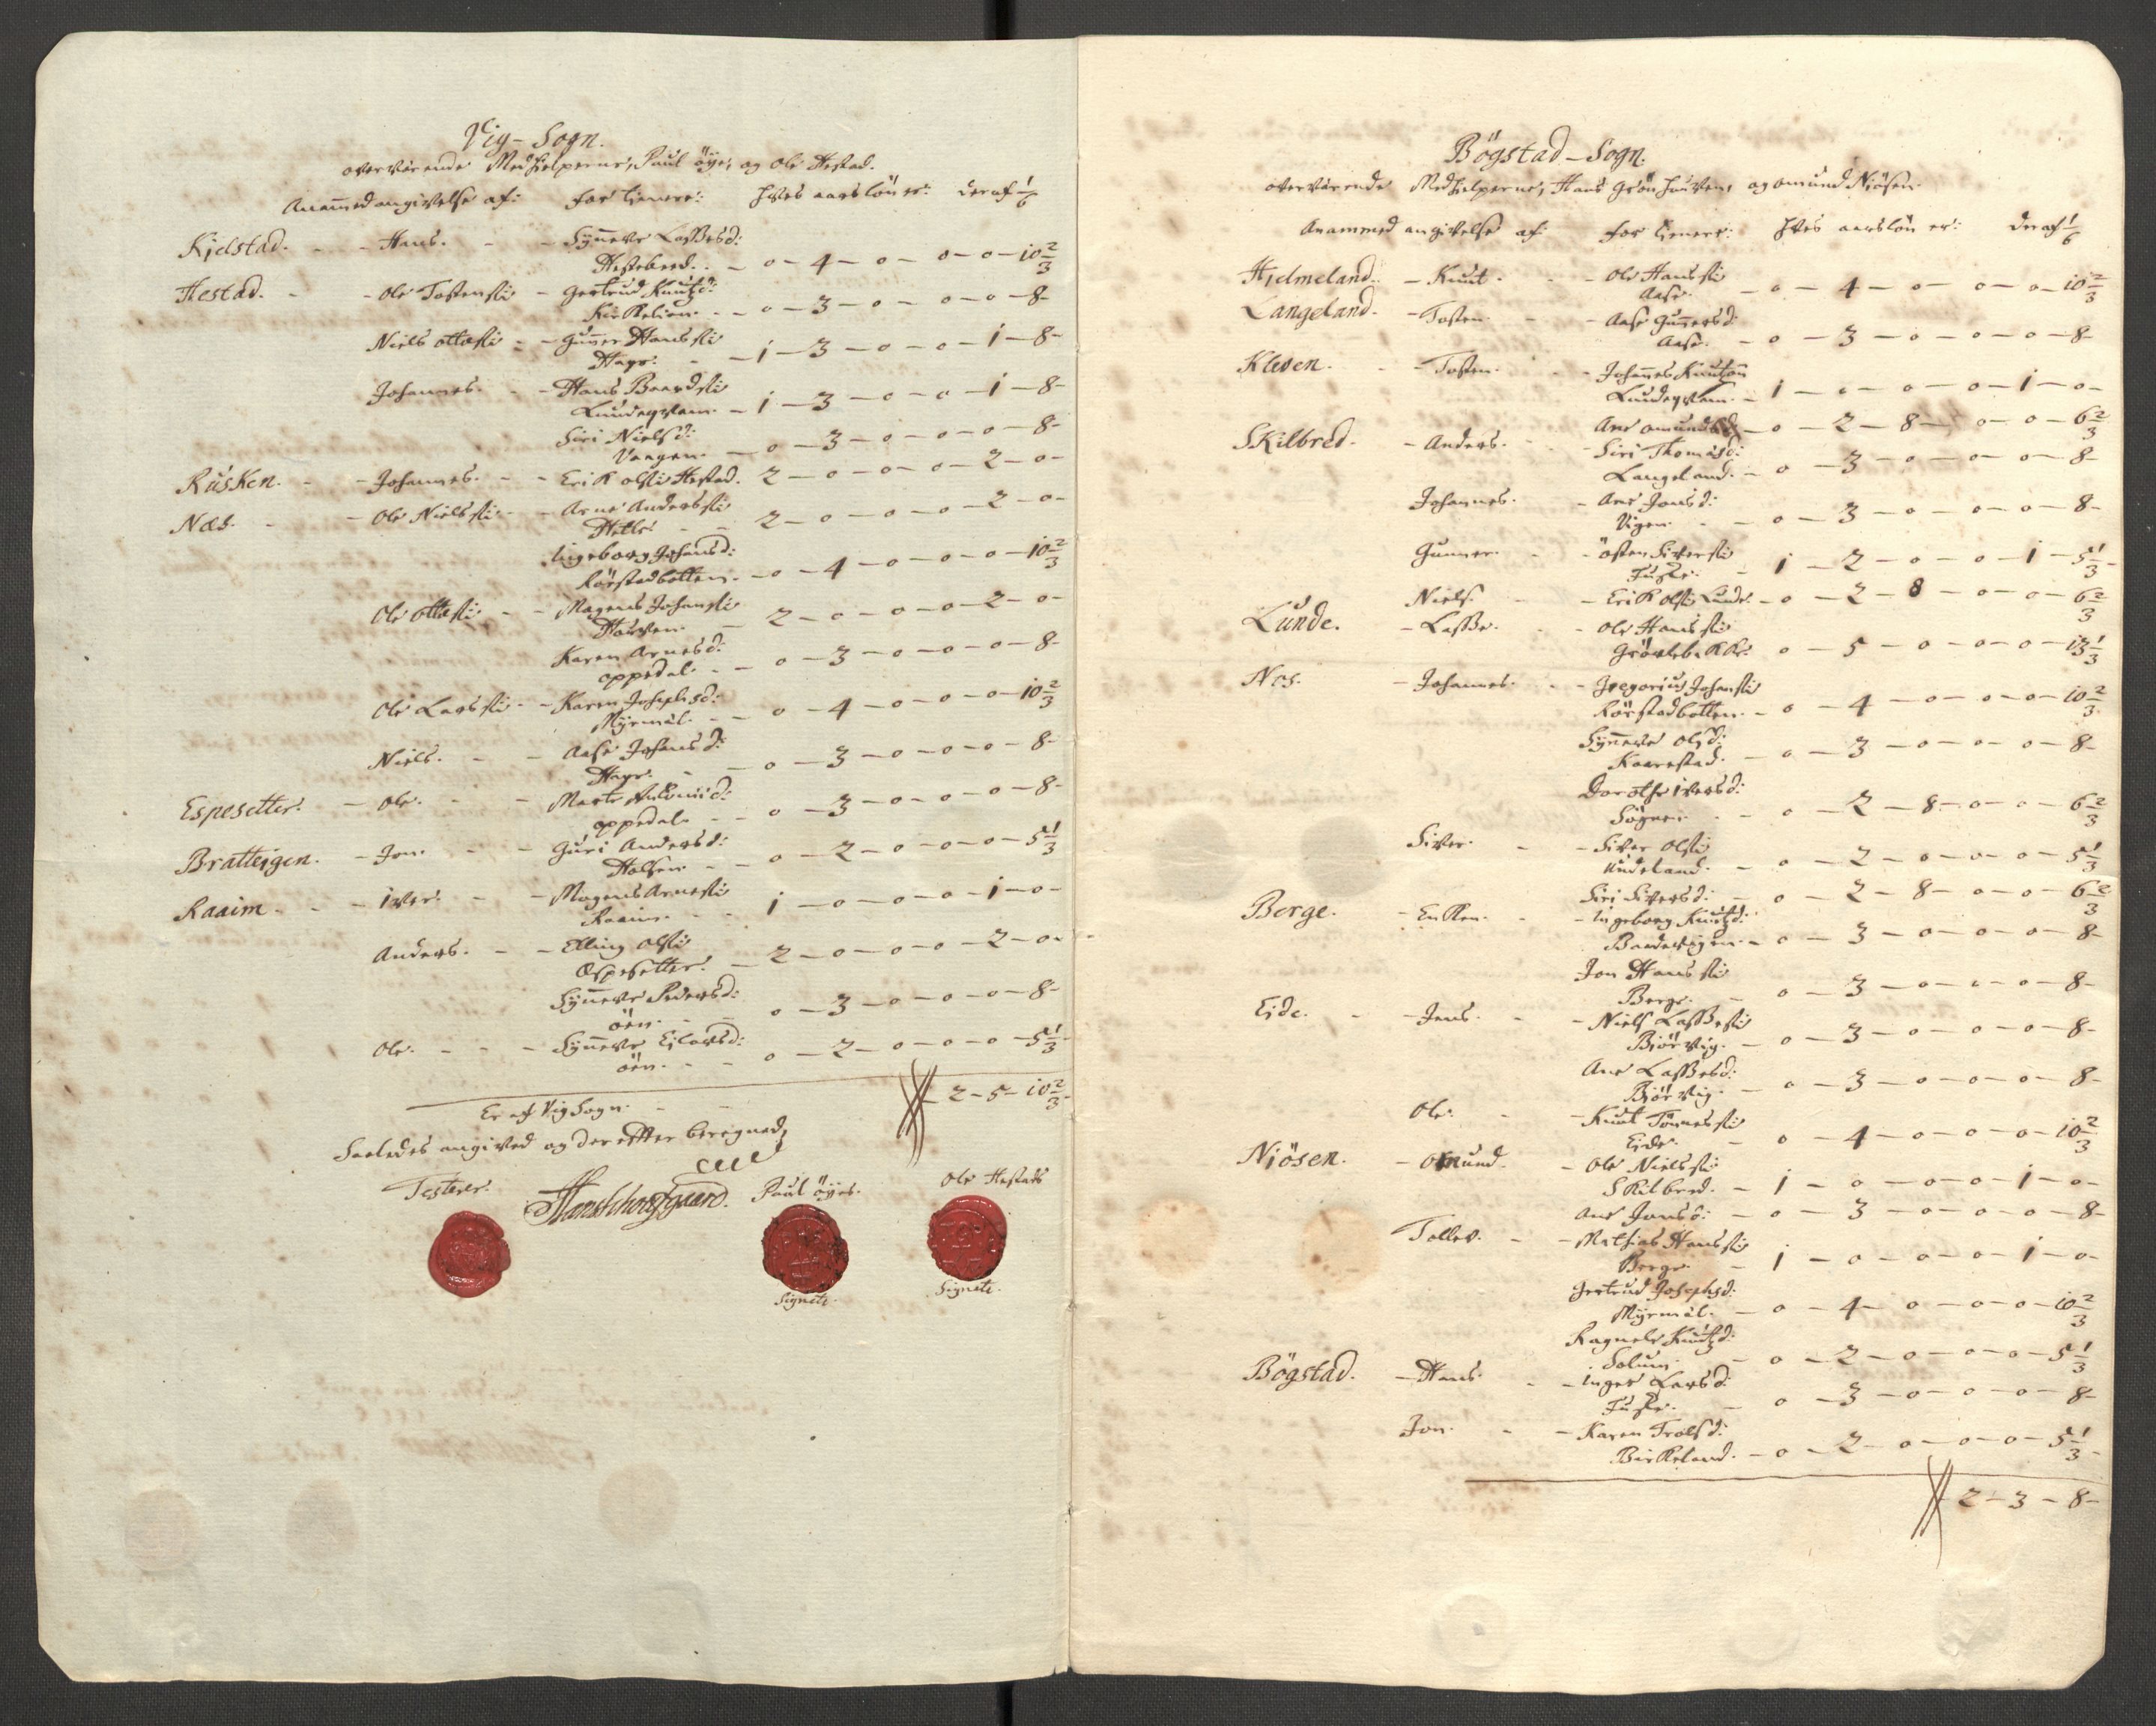 Vig - Sogn.
overværende Medhielperne, Paul öye, og Ole Hestad.
Anammed angivelse af: for tienere: hves aarslön er: deraf 1/6
Kjelstad. - - Hans. - - Synneve Lassesd:
Hestebeed. - 0 - 4 - 0 - 0 - 0 - 10 2/3
Hestad. - - Ole Tostensøn - Gertrud Knutzd:
Kirkelien. - - 0 - 3 - 0 - 0 - 0 - 8 -
Niels ottesøn - - Gunner Hanssøn
Hage. - - 1 - 3 - 0 - 0 - 1 - 8 -
Johannes. - - Hans Baardsøn
Lundeqvam. - 1 - 3 - 0 - 0 - 1 - 8 -
Siri Nielsd:
Vaagen. - 0 - 3 - 0 - 0 - 0 - 8 -
Rusken. - - Johannes. - - Erik olsøn Hestad. 2 - 0 - 0 - 0 - 2 - 0 -
Næs. - - Ole Nielssøn - - Arne Anderssøn
Helle - - 2 - 0 - 0 - 0 - 2 - 0 -
Ingeborg Johansd:
Rörstadbotten. - 0 - 4 - 0 - 0 - 0 - 10 2/3
Ole ottesøn - - Magnus Johansøn
Hougen. - 2 - 0 - 0 - 0 - 2 - 0 -
Karen Arnesd:
oppedal. - - 0 - 3 - 0 - 0 - 0 - 8 -
Ole Larssøn - - Karen Josephsd:
Myrmæl. - - 0 - 4 - 0 - 0 - 0 - 10 2/3
Niels. - - Aase Johansd:
Hage. - - 0 - 3 - 0 - 0 - 0 - 8 -
Espesetter. - Ole. - - Marte
oppedal. - - 0 - 3 - 0 - 0 - 0 - 8 -
Bratteigen. - Jon. - - Guri Andersd:
Holsen - - 0 - 2 - 0 - 0 - 0 - 5 1/3
Raaim - - - iver. - - Magnus Arnesøn
Raaim. - - 1 - 0 - 0 - 0 - 1 - 0 -
Anders. - - Elling olsøn
Espesetter. - 2 - 0 - 0 - 0 - 2 - 0 -
Synneve Pedersd:
öen. - - 0 - 3 - 0 - 0 - 0 - 8 -
Ole. - - - Synneve Ejlersd:
öen. - - 0 - 2 - 0 - 0 - 0 - 5 1/3 -
Er af Vig Sogn. - - 2 - 5 - 10 2/3 -
Saaledes angived og derefter beregned,
Testerer.
Paul öyes.
Ole Hestads
Signete.
Signete.
Bögstad - Sogn.
overværende Medhielperne, Hans Grönhougen, og omund Niösen.
Anammed angivelse af: for tienere: hves aarslön er: deraf 1/6
Hjelmeland. - Knut. - - Ole Hanssøn
Aase. - 0 - 4 - 0 - 0 - 0 - 10 2/3
Langeland. - Tosten. - - Aase Gunnersd:
Aase. - 0 - 3 - 0 - 0 - 0 - 8 -
Kleven. - Tosten. - - Johannes Knutzøn
Lundeqvam. - 1 - 0 - 0 - 0 - 1 - 0 -
Ane omundsd: - 0 - 2 - 8 - 0 - 0 - 6 2/3
SKilbred. - Anders. - - Siri Thomasd:
Langeland. - 0 - 3 - 0 - 0 - 0 - 8 -
Johannes. - Ane Jonsd:
Vigen. - - 0 - 3 - 0 - 0 - 0 - 8 -
Gunner. - - östen Siversøn
- 1 - 2 - 0 - 0 - 1 - 5 1/3 -
Niels. - - Erik olsøn Lunde. - 0 - 2 - 8 - 0 - 0 - 6 2/3
Lunde. - Lasse. - - Ole Hanssøn
Grövlebakke. 0 - 5 - 0 - 0 - 0 - 13 1/3
Nes. - Johannes. - - Gregorius Johansøn
Rörstadbotten. - 0 - 4 - 0 - 0 - 0 - 10 2/3
Synneve olsd:
Kaarestad. - 0 - 3 - 0 - 0 - 0 - 8 -
Dorothe iversd:
Sögnes. - 0 - 2 - 8 - 0 - 0 - 6 2/3
Siver. - - Siver olsøn
Undeland. - 0 - 2 - 0 - 0 - 0 - 5 1/3
Siri Siversd: - 0 - 2 - 8 - 0 - 0 - 6 2/3
Berge. - Enken. - - Ingeborg Knutzd:
- 0 - 3 - 0 - 0 - 0 - 8 -
Jon Hanssøn
Berge. - 0 - 3 - 0 - 0 - 0 - 8 -
Eide. - - Jens. - - Niels Lassesøn
Biörvig. - 0 - 3 - 0 - 0 - 0 - 8 -
Ane Lassesd:
Biörvig. - 0 - 3 - 0 - 0 - 0 - 8 -
Ole. - - Knut Tönnessøn
Eide. - 0 - 4 - 0 - 0 - 0 - 10 2/3
Niösen. - Omund. - Ole Nielssøn
SKilbred. - 1 - 0 - 0 - 0 - 1 - 0 -
Ane Jonsd: - 0 - 3 - 0 - 0 - 0 - 8 -
Tollev. - - Mathias Hanssøn
Berge. - 1 - 0 - 0 - 0 - 1 - 0 -
Gertrud Josephsd:
Myrmæl. - 0 - 4 - 0 - 0 - 0 - 10 2/3
Ragnele Knutzd:
Solum. - 0 - 2 - 0 - 0 - 0 - 5 1/3
Bögstad. - Hans. - - Inger Larsd:
- 0 - 3 - 0 - 0 - 0 - 8 -
Jon. - - Karen Trolsd:
Birkeland. - 0 - 2 - 0 - 0 - 0 - 5 1/3 -
2 - 3 - 8 -